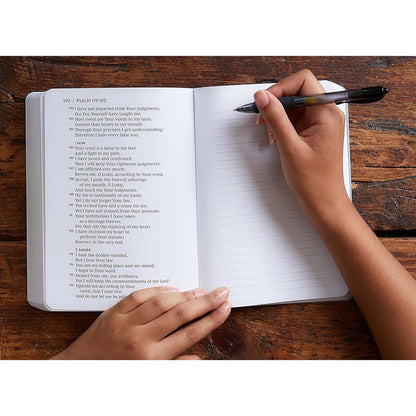 592 | PSALM 119:102
I have not departed from Your judgments,
For You Yourself have taught me.
How sweet are Your words to my taste,
Sweeter than honey to my mouth!
Through Your precepts I get understanding;
Therefore I hate every false way.
NUN
Your word is a lamp to my feet
And a light to my path.
I have sworn and confirmed
That I will keep Your righteous judgments.
I am afflicted very much;
Revive me, O LORD, according to Your word.
Accept, I pray, the freewill offerings
of my mouth, O LORD,
And teach me Your judgments.
My life is continually in my hand,
Yet I do not forget Your law.
The wicked have laid a snare for me,
Yet I have not strayed from Your precepts.
Your testimonies I have taken
as a heritage forever,
For they are the rejoicing of my heart.
I have inclined my heart to
perform Your statutes
Forever, to the very end.
SAMEK
I hate the double-minded,
But I love Your law.
You are my hiding place and my shield;
I hope in Your word.
Depart from me, you evildoers,
For I will keep the commandments of my God!
Uphold me according to Your
word, that I may live;
And do not let me be